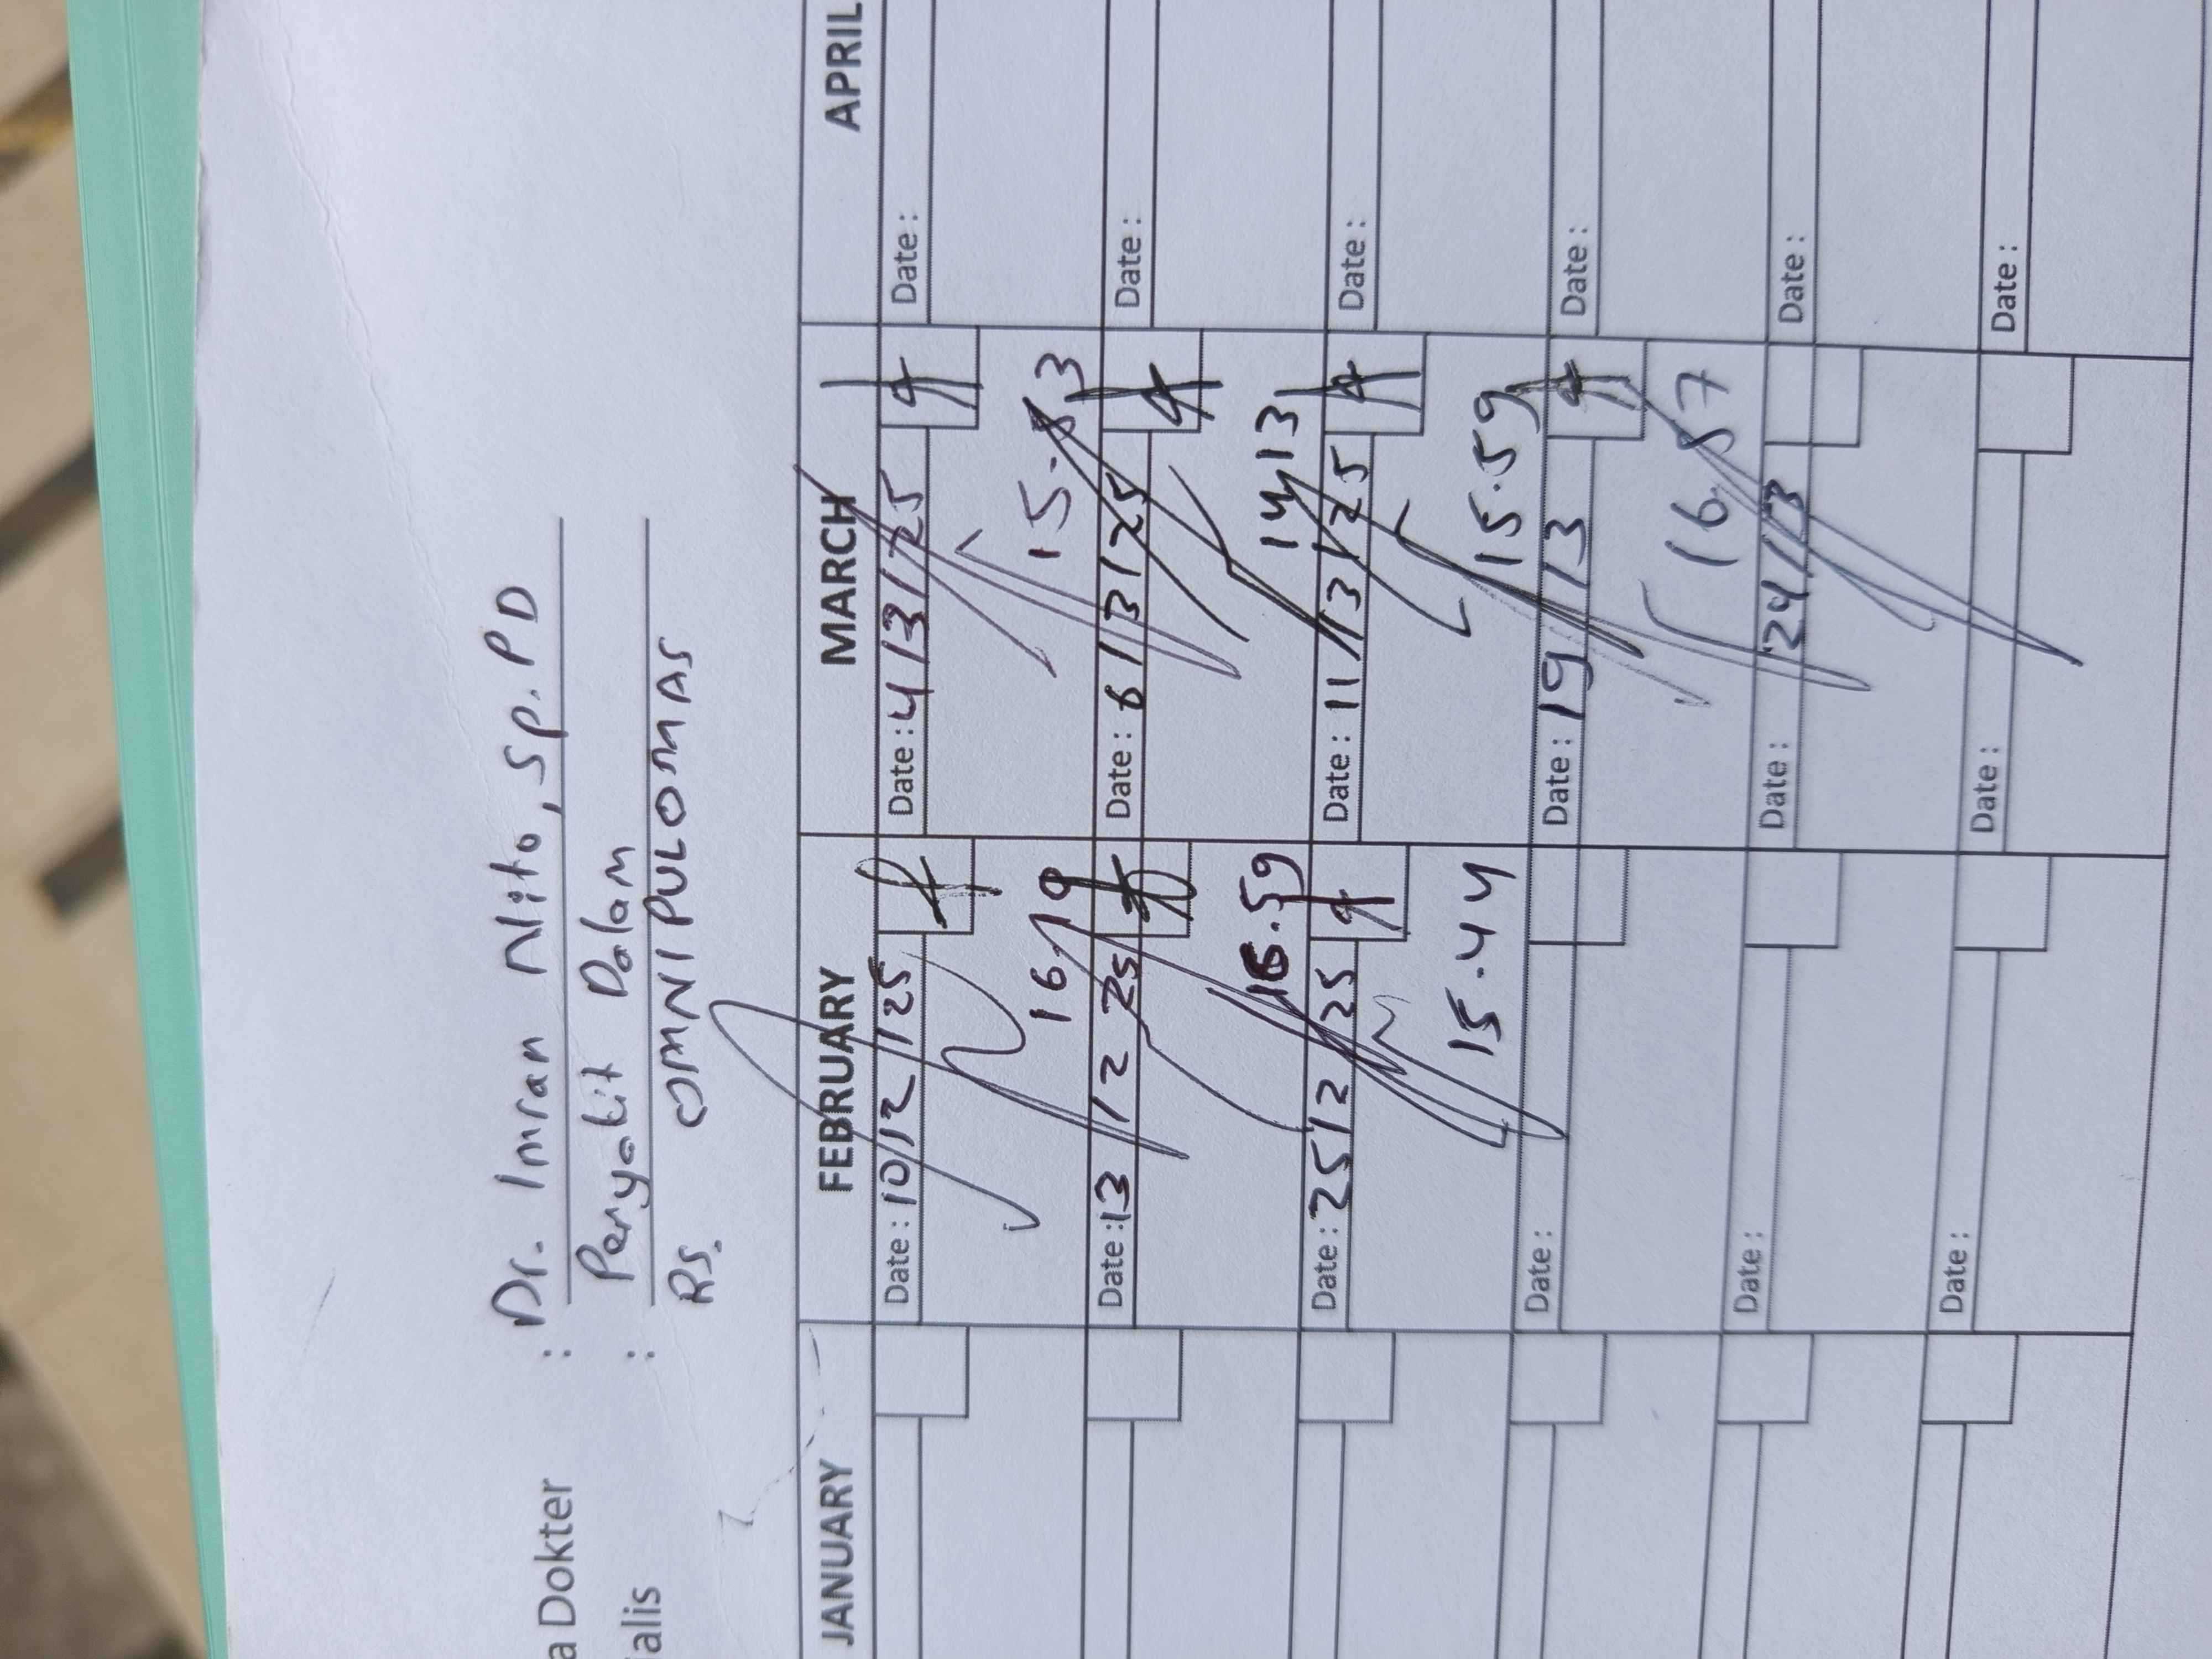 a Dokter : Dr. Imran Nito, Sp. PD
alis : Penyakit Dalam
RS. OMNI PULOMAS
JANUARY FEBRUARY MARCH APRIL
Date : 10/2/25 Date : 4/3/25 Date :
16.19 15.53
Date : 13/2 25 Date : 6/3/25 Date :
16.59 14.13
Date : 25/2 25 Date : 11/3/25 Date :
15.44 15.59
Date : Date : 19/3 Date :
16.57
Date : Date : 24/3 Date :
Date : Date : Date :